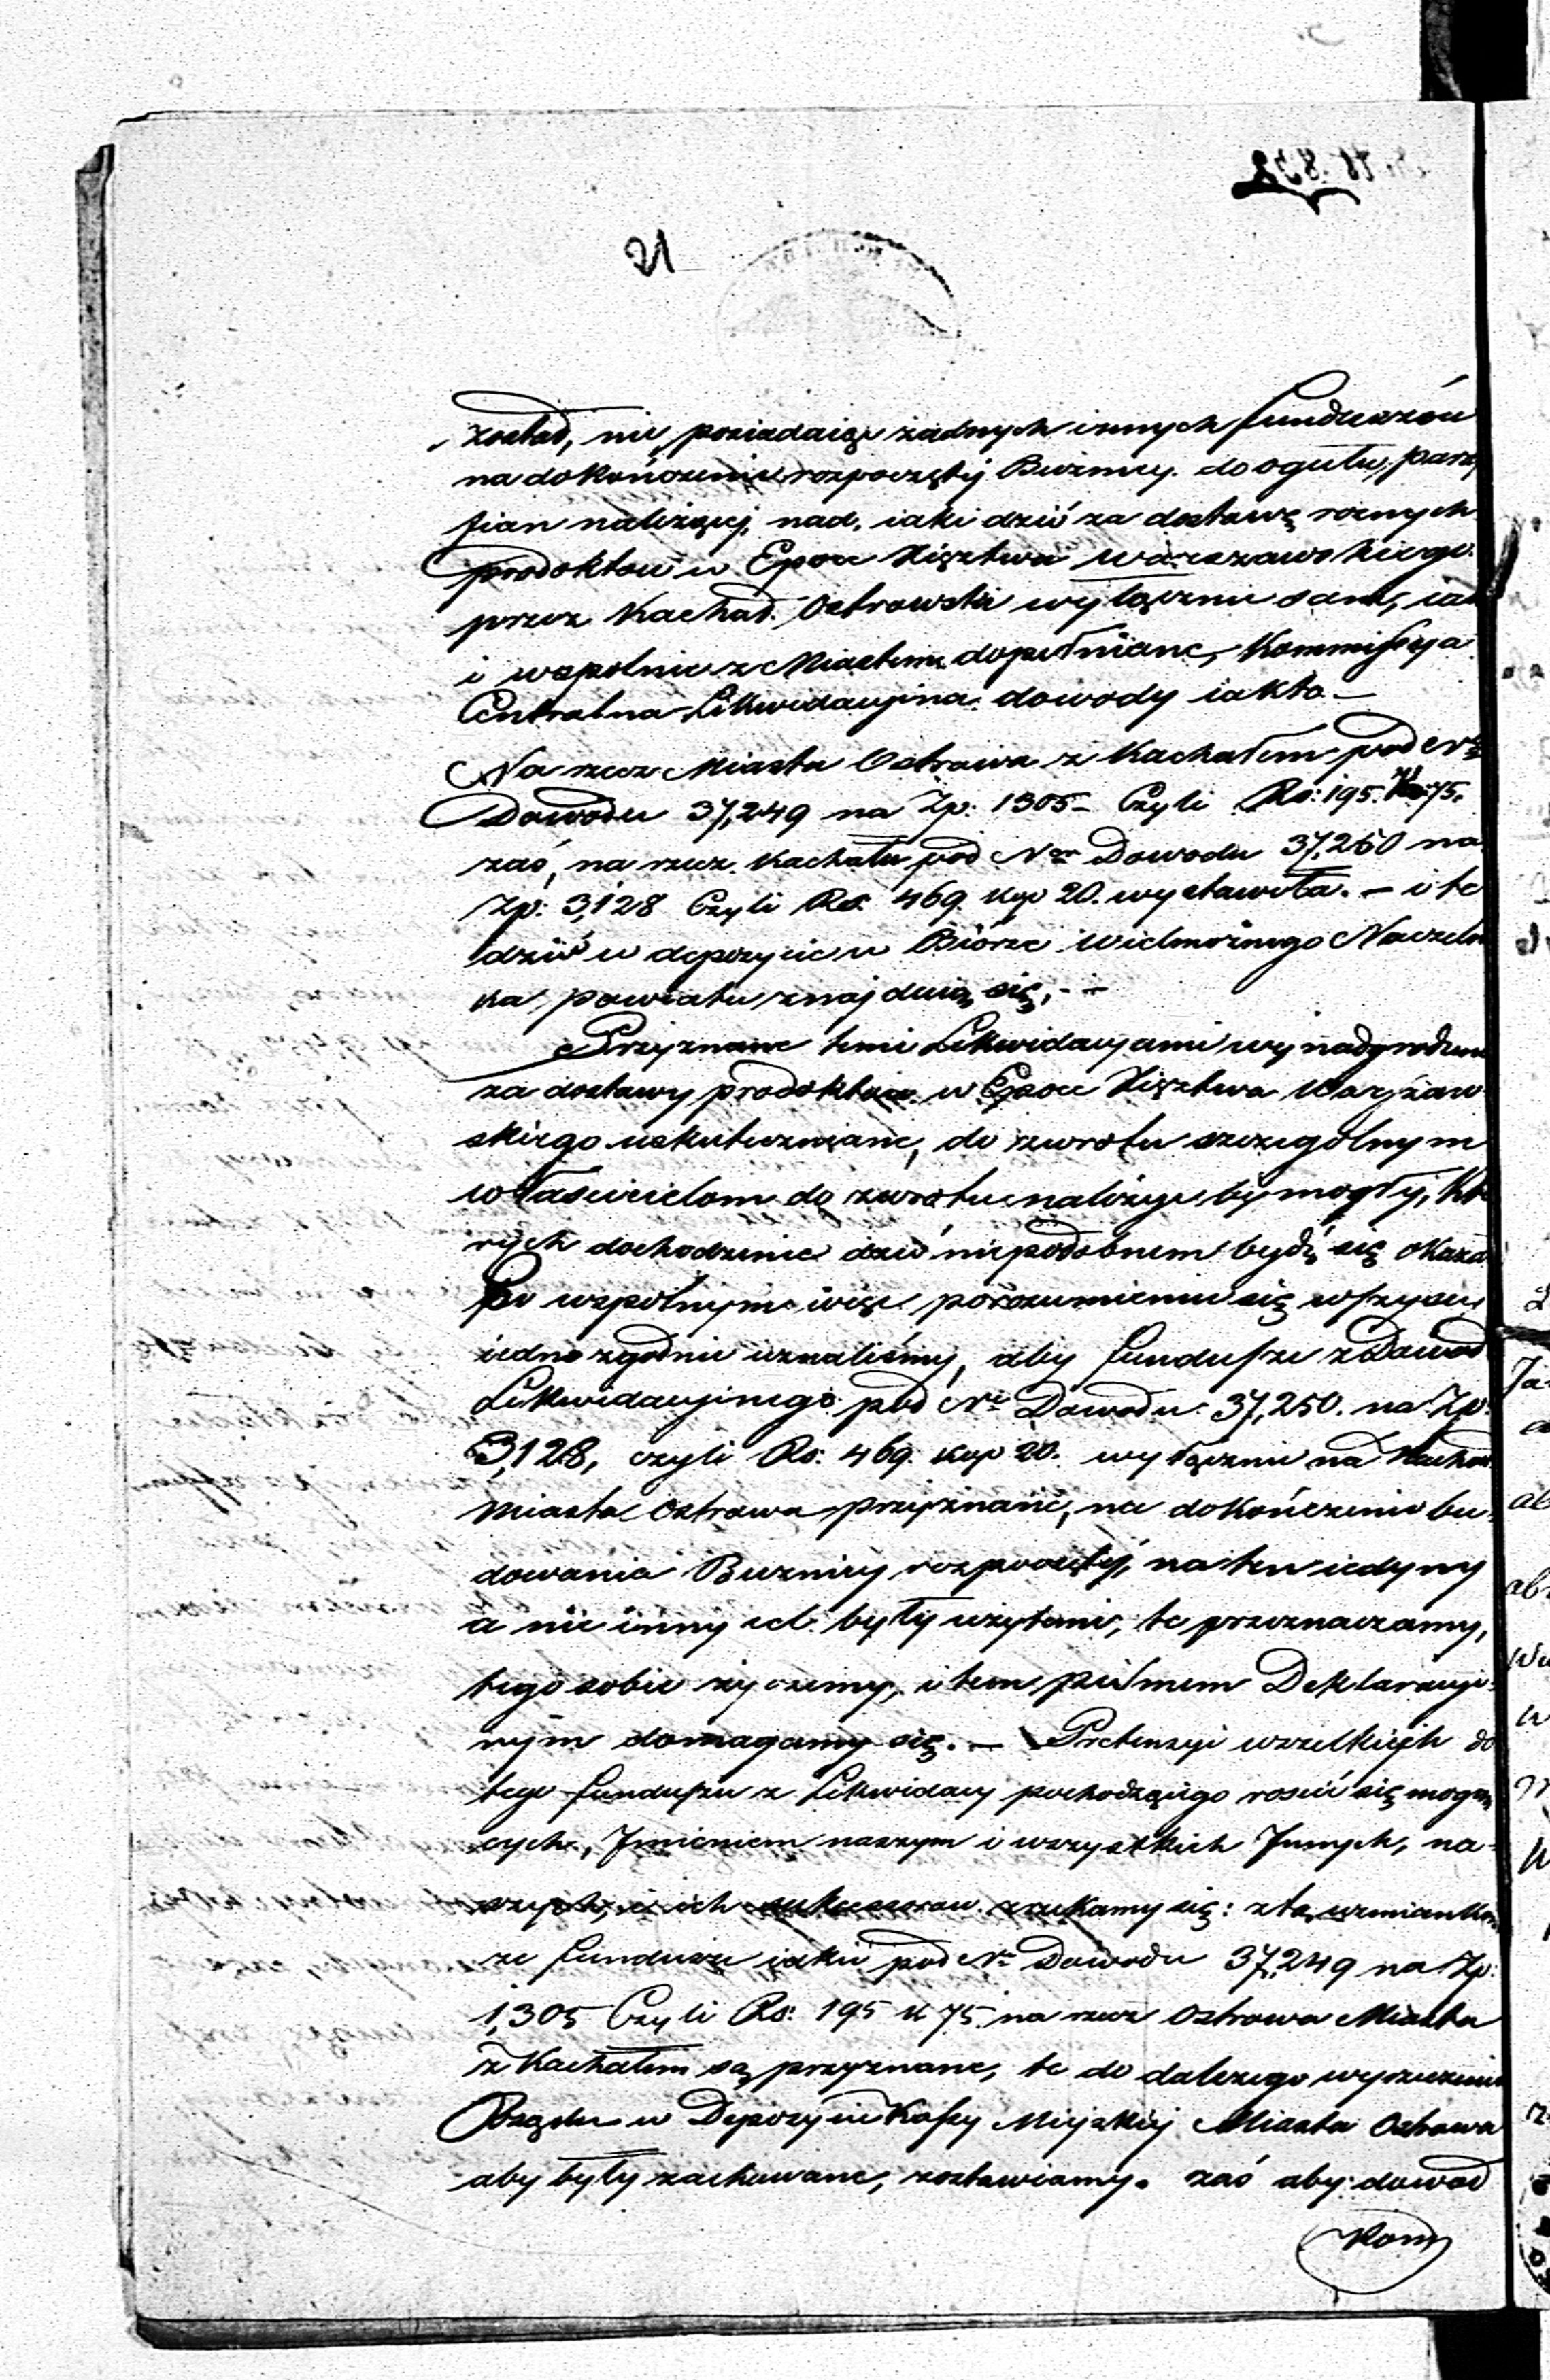 21
został, nie posiadaiąc żadnych innych funduszów
na dokończenie rozpoczętij Bużnicy do ogułu para,,
fian należącej, nad, iaki dziś za dostawę roznych
prodoktow w Epoce Xięztwa Warszawskiego
przez Kachał Ostrowski wyłącznie sam, iak
i wspolnie z Miastem dopełniane, Kommissya
Centralna Likwidacyjna dowody iakto –
Na rzecz Miasta Ostrowa z Kachałem pod Nr
Dowodu 37,249 na Zp: 1305 – Czyli Rs: 195. Ko: 75.
zaś, na rzecz Kachału pod Nr Dowodu 37,250 na
Zp: 3,128 Czyli Rs. 469. kop 20. wystawiła. – i te
dziś w depozycie w Biórze Wielmożnego Naczelni
ka powiatu znajduią się, – –
Przyznane temi Likwidacyami wynadgrodzenie
za dostawy prodoktów w Epoce Xięztwa Warszaw
skiego uskuteczniane, do zwrotu szczegolnym
właścicielom do zwrotu należyc by mogły, Któ
rych dochodzenie dziś niepodobnem bydź się okaza
Po wspólnym więc porozumieniu się wszyscy
iednozgodnie uznaliśmy, aby fundusze z Dowod
Likwidacyjnego pod Nr Dowodu 37,250. na Zp:
3,128, czyli Rs: 469. kop 20. wyłącznie na Kachał
Miasta Ostrowa przyznane, na dokończenie bu,,
dowania Bużnicy rozpoczętéj, na ten iedyny
a nie inny cel były użytemi, te przeznaczamy,
tego sobie życzemy, i tem pismem Deklaracyi
nym domagamy się. – Pretensyi wszelkiych do
tego funduszu z Likwidacy pochodzącego rościć się mogą
cych, Jmieniem naszym i wszystkich Jnnych, na-
szych, i ich sukcessorow zrzekamy się: z tą wzmianką
ze fundusze iakie pod Nr Dowodu 37,249 na Zp:
1,305 Czyli Rs: 195 k 75. na rzecz Ostrowa Miasta
z Kachałem są przyznane, te do dalszego wyrzeczenia
Rządu w Depozycie Kassy Miejskiej Miasta Ostrowa
aby były zachowane, zostawiamy. zaś aby dowod
Kom